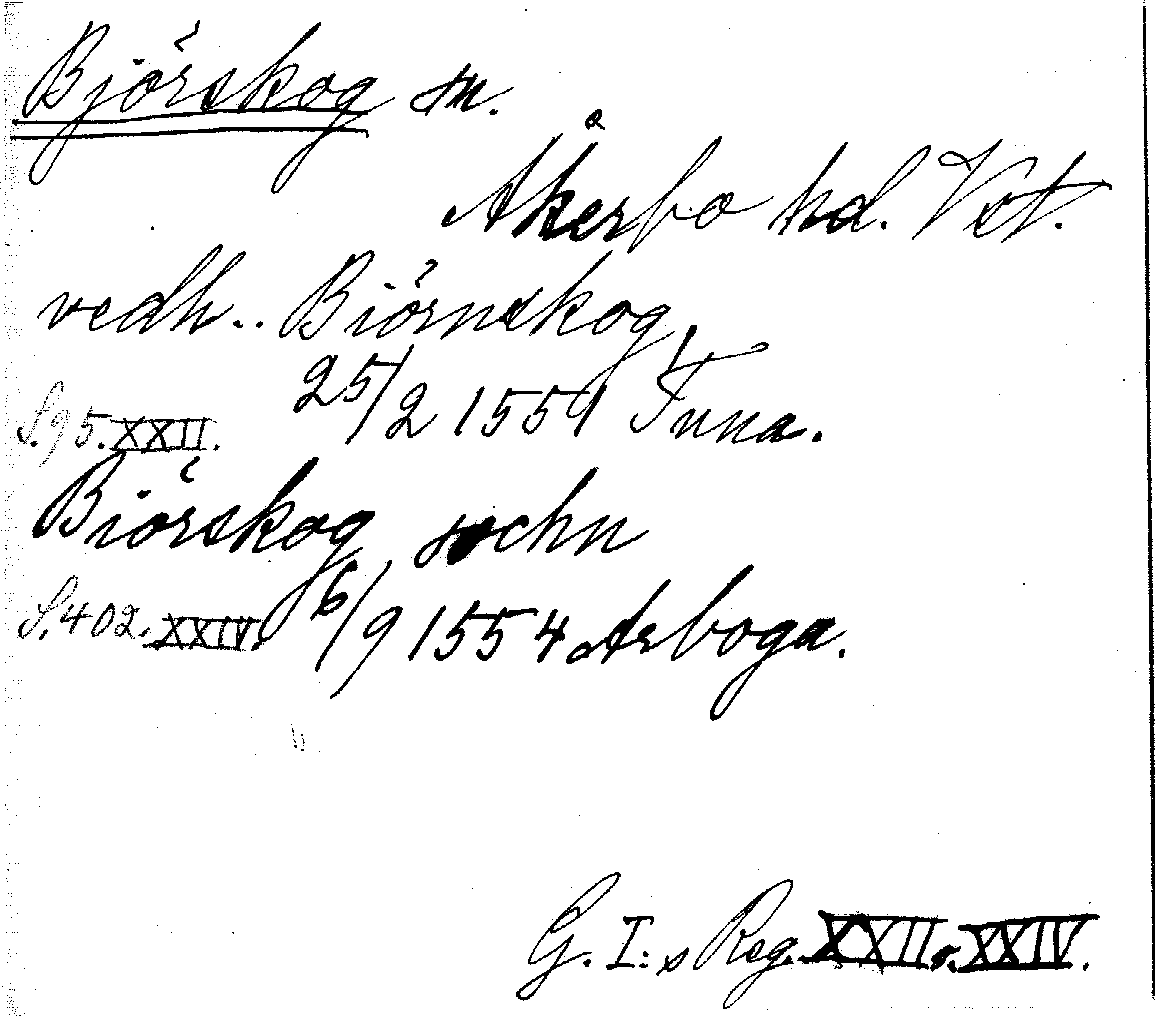 Björskog sn.
Åkerbo hd. Vst.
vedh.. Biörnskog,
25/2 1551 Tuna.
S. 95. XXII.
Biörskog sochn
S. 402. XXIV. 6/9 1554 Arboga.
G. I:s Reg. XXII o. XXIV.